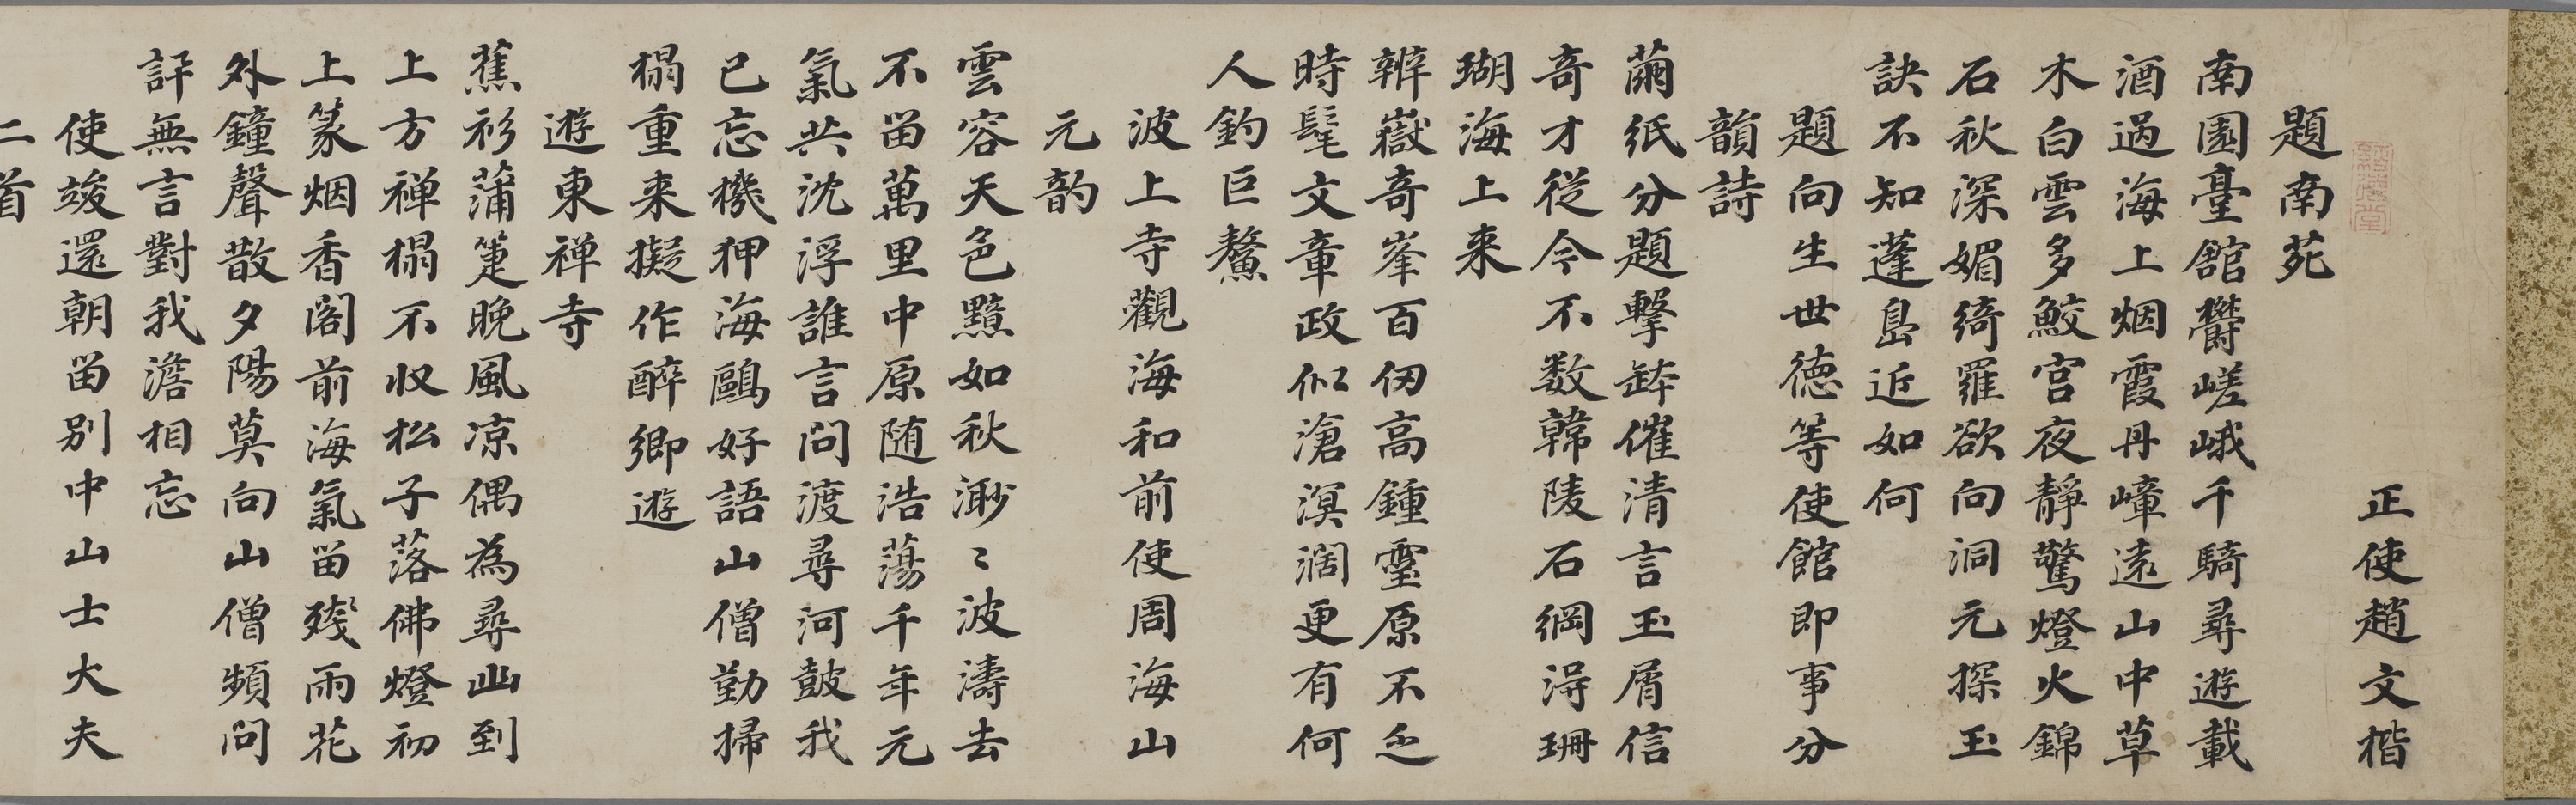 正使趙文楷
題南苑
南園臺館鬱嵯峨千騎尋遊載
酒過海上烟霞丹嶂遠山中草
木白雲多鮫宮夜靜驚燈火錦
石秋深媚綺羅欲向洞元探玉
訣不知蓬島近如何
題向生世德等使館即事分
韻詩
繭紙分題擊鉢催清言玉屑信
奇才從今不数韓陵石綱淂珊
瑚海上来
辨嶽奇峯百仞高鍾靈原不乏
時髦文章政似滄溟濶更有何
人釣巨鰲
波上寺觀海和前使周海山
元韵
雲容天色黯如秋渺〻波濤去
不留萬里中原随浩蕩千年元
氣共沈浮誰言問渡尋河鼓我
已忘機狎海鷗好語山僧勤掃
榻重来擬作醉鄉遊
遊東禅寺
蕉衫蒲箑晚風凉偶為尋幽到
上方禅榻不収松子落佛燈初
上篆烟香閣前海氣留殘雨花
外鐘聲散夕陽莫向山僧頻問
訐無言對我澹相忘
使竣還朝留別中山士大夫
二首